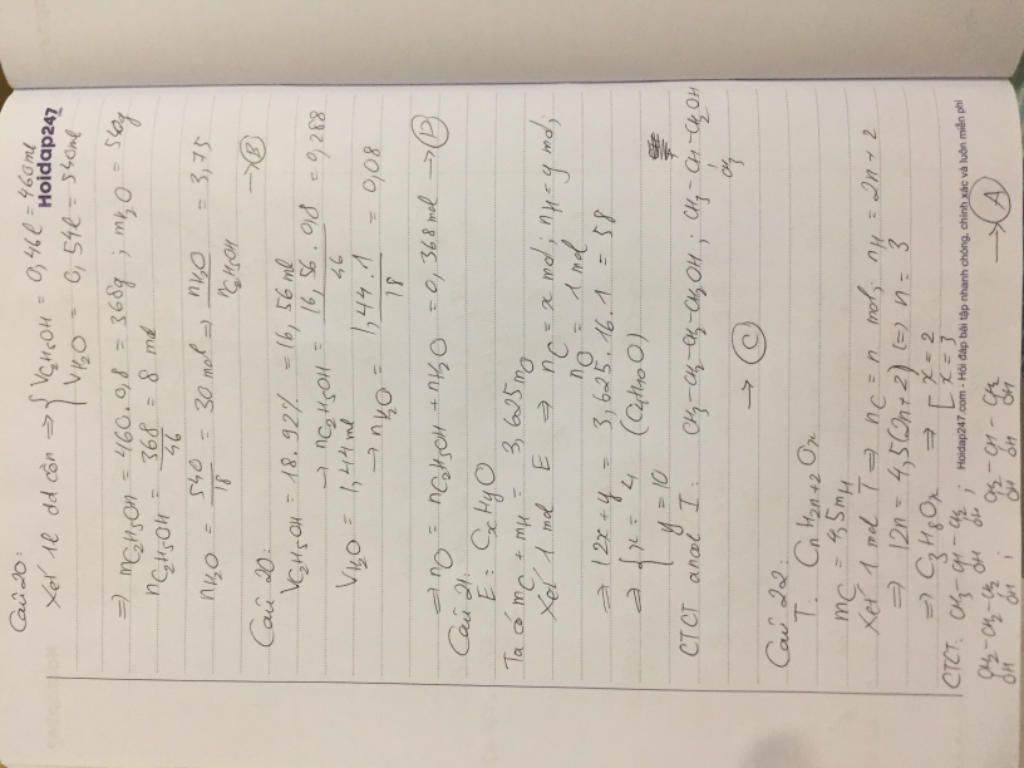 Hoidap247
Câu 20:
Xét 1l dd cồn ⇒ { VC2H5OH = 0,46l = 460ml
VH2O = 0,54l = 540ml
⇒ mC2H5OH = 460.0,8 = 368g ; mH2O = 540g
nC2H5OH = 368/46 = 8 mol
nH2O = 540/18 = 30 mol ⇒ nH2O/nC2H5OH = 3,75
→ (B)
Câu 20:
VC2H5OH = 18.92% = 16,56 ml
→ nC2H5OH = 16,56.0,8/46 = 0,288
VH2O = 1,44ml
→ nH2O = 1,44.1/18 = 0,08
⇒ nO = nC2H5OH + nH2O = 0,368 mol → (D)
Câu 21:
E: CxHyO
Ta có mC + mH = 3,625mO
Xét 1 mol E ⇒ nC = x mol; nH = y mol;
nO = 1 mol
⇒ 12x + y = 3,625.16.1 = 58
⇒ { x = 4
y = 10 (C4H10O)
CTCT ancol I: CH3-CH2-CH2-CH2OH; CH3-CH-CH2OH
CH3
→ (C)
Câu 22:
T: CnH2n+2Ox
mC = 4,5mH
Xét 1 mol T ⇒ nC = n mol; nH = 2n+2
⇒ 12n = 4,5(2n+2) (=) n = 3
⇒ C3H8Ox ⇒ [ x = 2
x = 3
CTCT: CH3-CH-CH2;
OH OH
CH2-CH2-CH2;
OH OH
CH2-CH-CH2
OH OH OH
→ (A)
Hoidap247.com - Hỏi đáp bài tập nhanh chóng, chính xác và luôn miễn phí